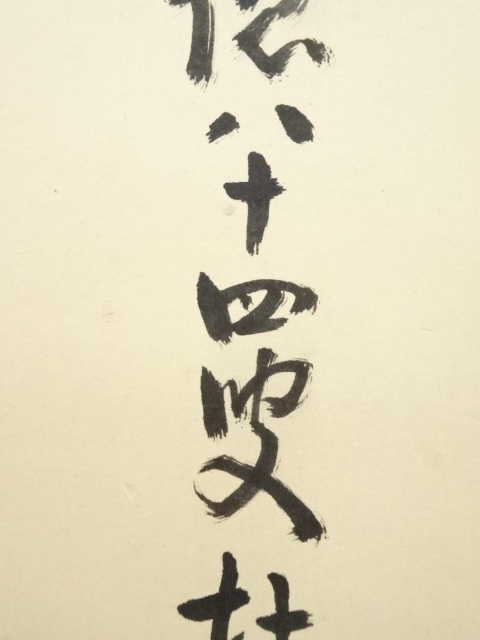 八十四叟